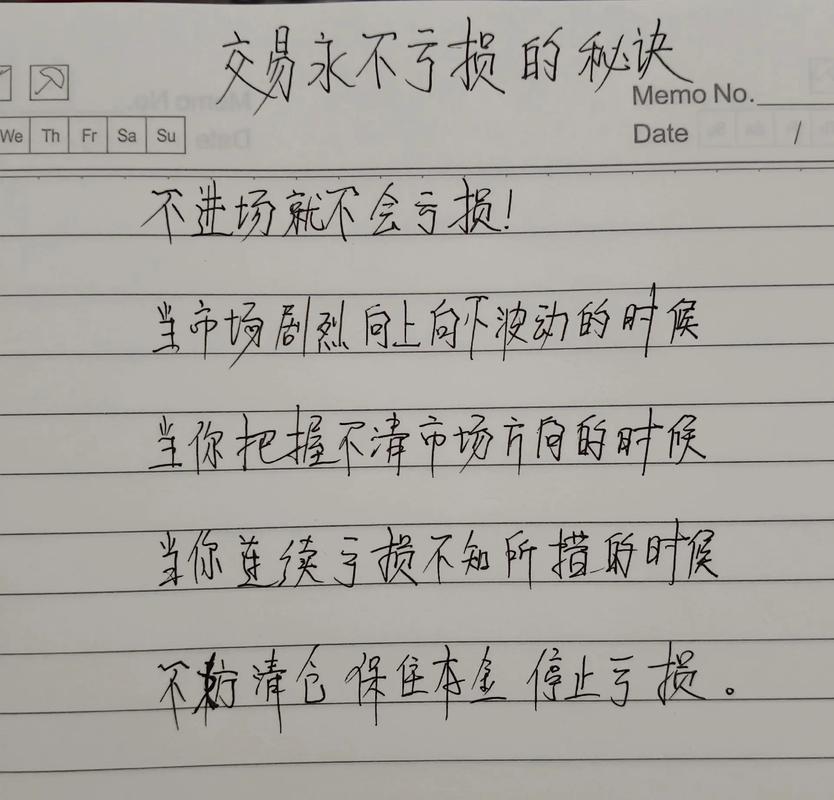 交易永不亏损的秘诀
Memo No.
We Th Fr Sa Su
Date /
不进场就不会亏损!
当市场剧烈向上向下波动的时候
当你把握不清市场方向的时候
当你连续亏损不知所措的时候
不 清仓 保住本金 停止亏损。